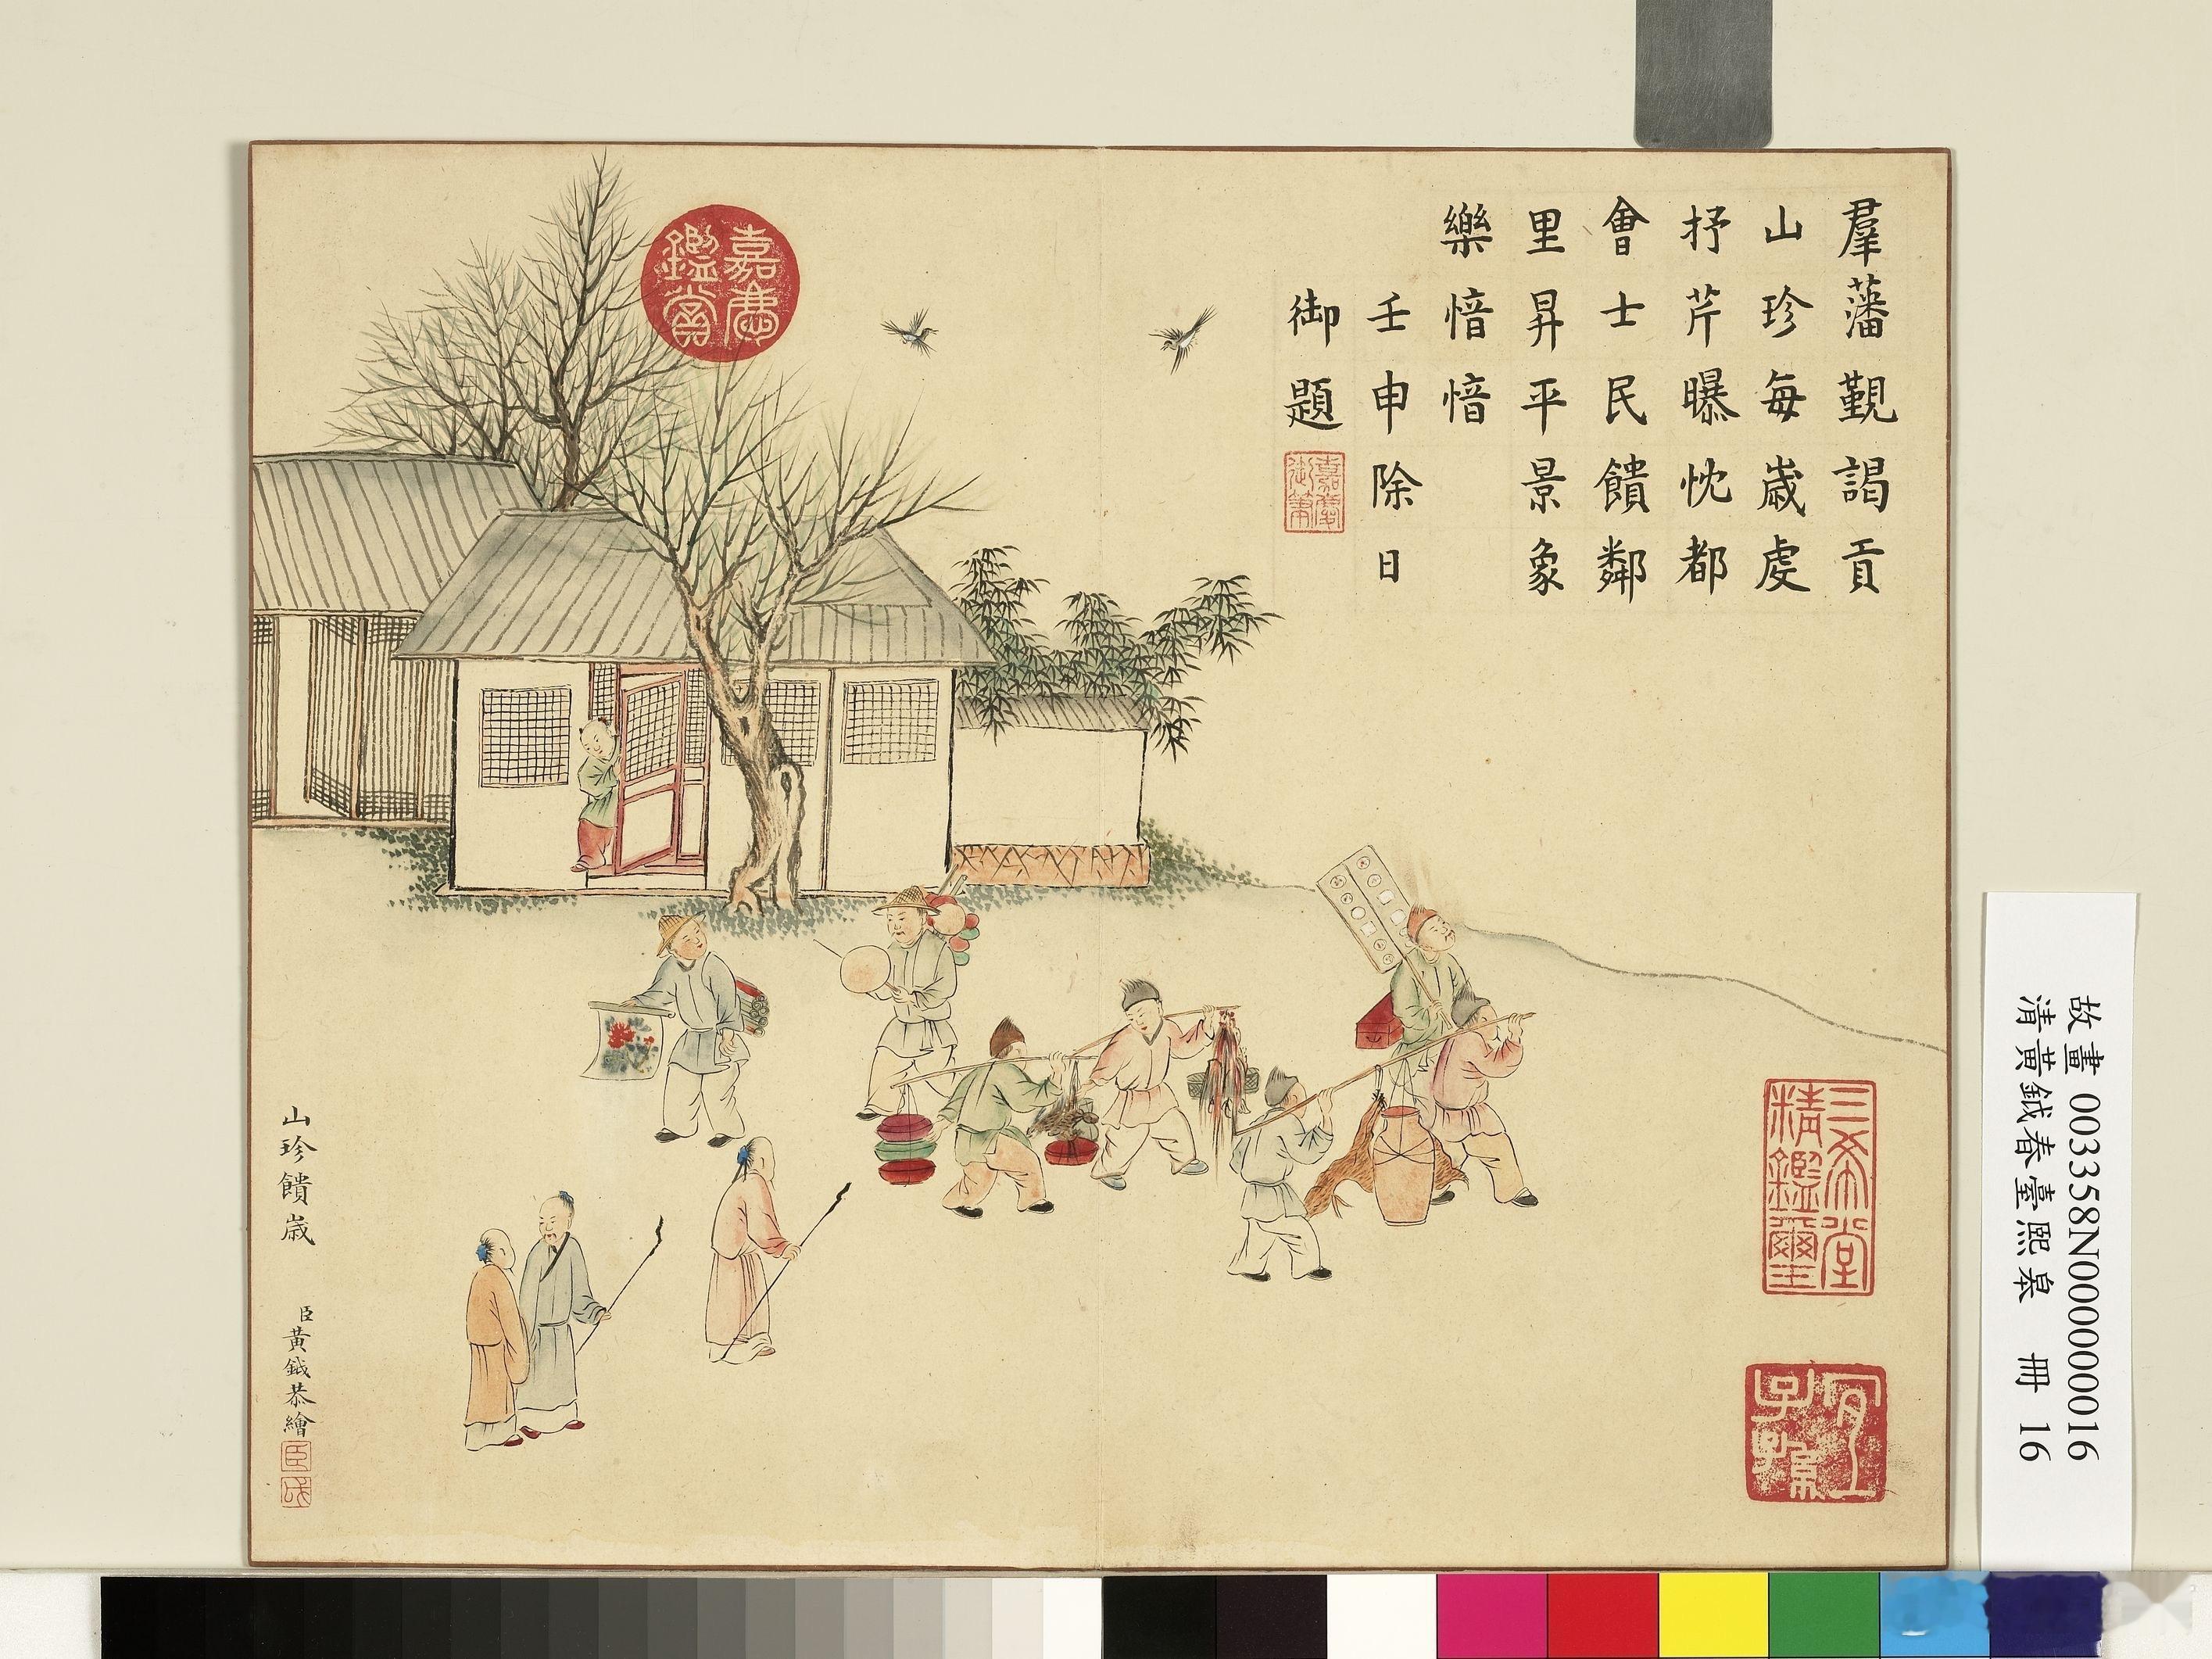 羣藩覲謁貢
山珍每歲虔
抒芹曝忱都
會士民饋鄰
里昇平景象
樂愔愔
壬申除日
御題
嘉慶御筆
嘉慶鑑賞
三希堂精鑑璽
宜子孫
山珍饋歲
臣黃鉞恭繪
臣
鉞
故畫 003358N000000016
清黃鉞春臺熙皞 冊 16